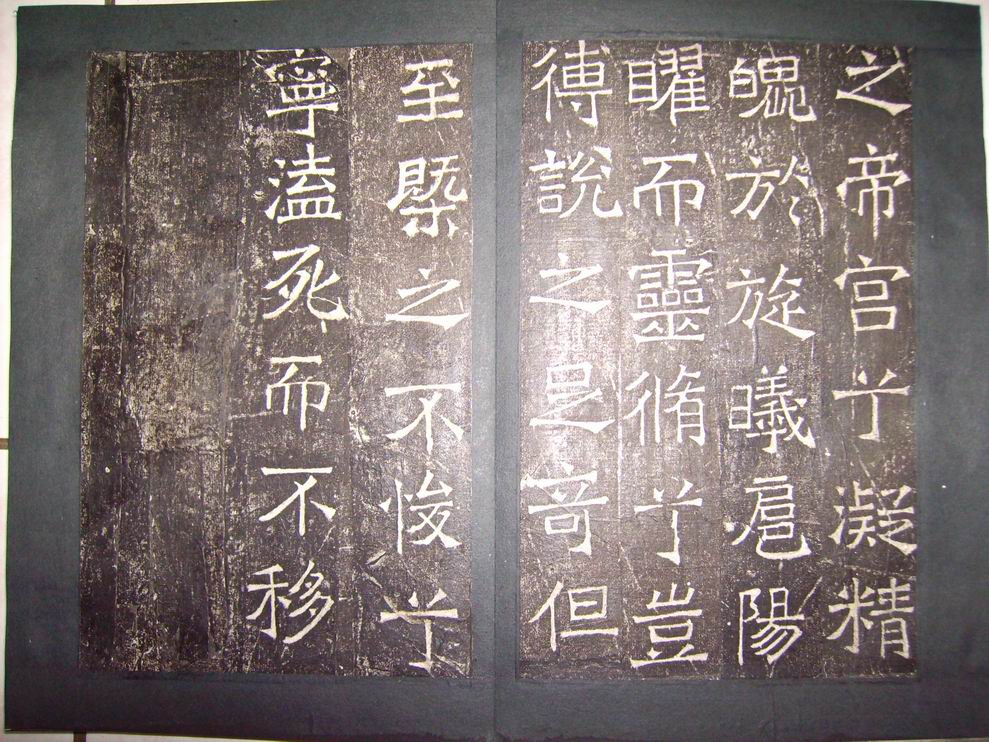 之帝宫兮凝精
魄於旋曦扈陽
曜而靈脩兮豈
傅說之是竒但
至槩之不悛兮
寧溘死而不移